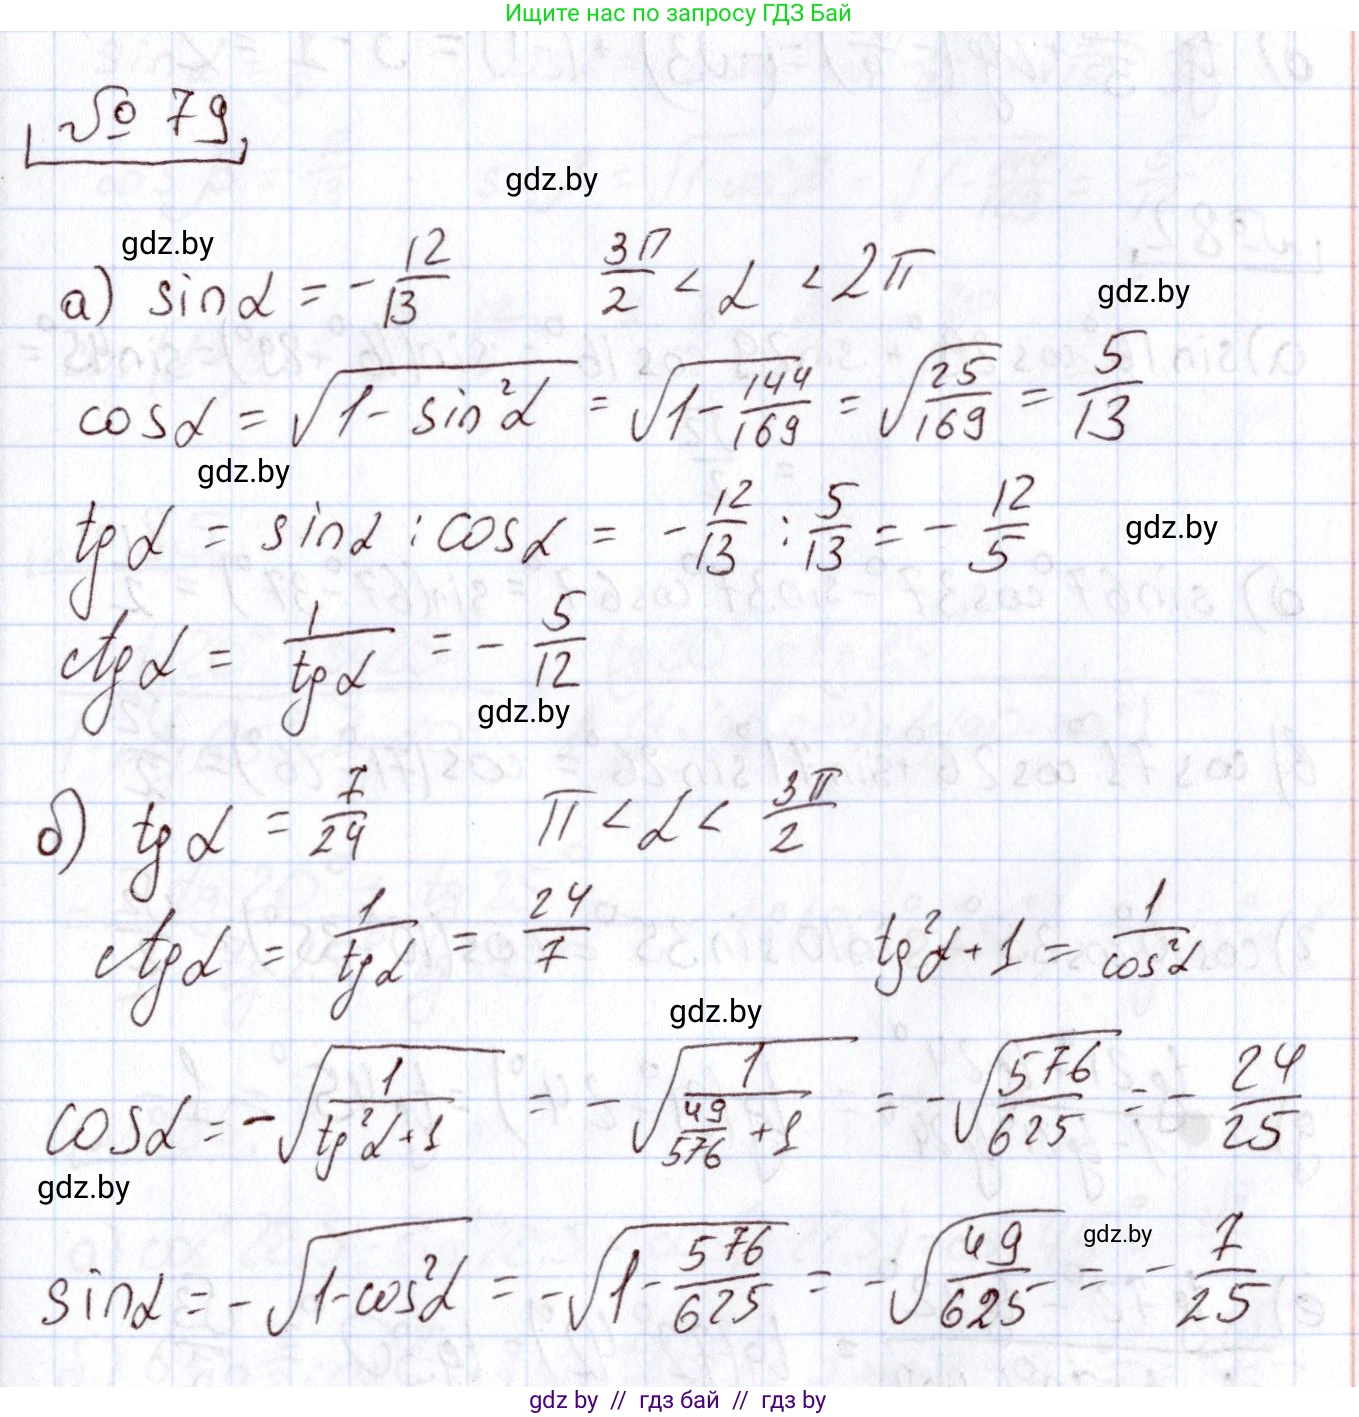 Ищите нас по запросу ГДЗ Бай
№ 79
gdz.by
gdz.by
а) sin α = - 12/13     3π/2 < α < 2π
gdz.by
cos α = √(1 - sin²α) = √(1 - 144/169) = √(25/169) = 5/13
gdz.by
tg α = sin α : cos α = - 12/13 : 5/13 = - 12/5
gdz.by
ctg α = 1/(tg α) = - 5/12
gdz.by
б) tg α = 7/24     π < α < 3π/2
ctg α = 1/(tg α) = 24/7     tg²α + 1 = 1/(cos²α)
gdz.by
cos α = -√(1/(tg²α + 1)) = -√(1/(49/576 + 1)) = -√(576/625) = - 24/25
gdz.by
sin α = -√(1 - cos²α) = -√(1 - 576/625) = -√(49/625) = - 7/25
gdz.by
gdz by // гдз бай // гдз by